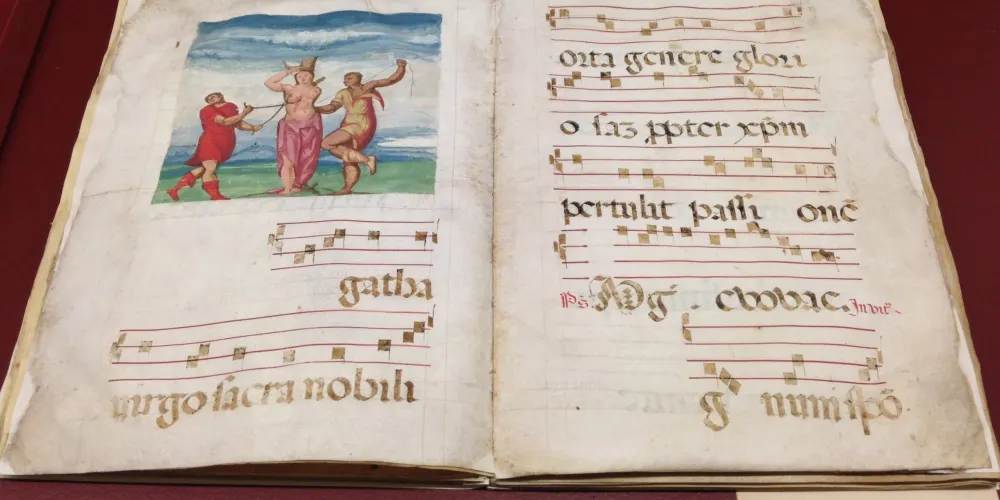 gatha
virgo sacra nobili
orta genere glori
o saz ppter xp̄m
pertulit passi onē
Ps. Ag evovae. Invit.
g num spō